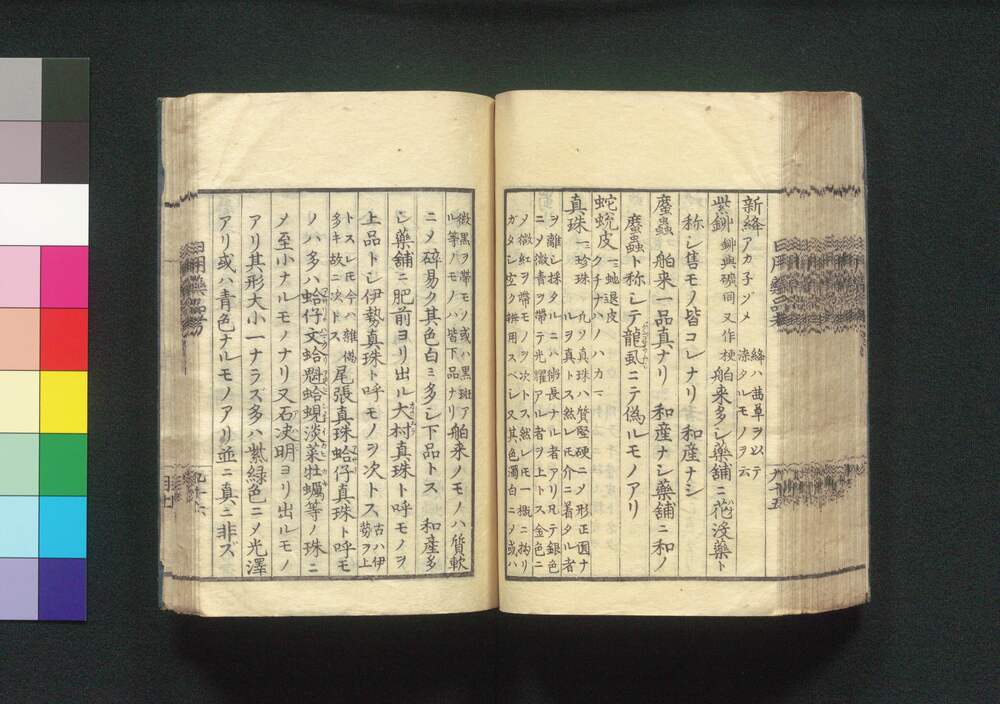 新絳アカ子ヅメ 絳ハ茜草ヲ以テ染タルモノヲ云
紫鉚 鉚與礦同又作梗 舶来多シ薬舗ニ花没薬ト
称シ售モノ皆コレナリ 和産ナシ
䗪蟲 舶来一品真ナリ 和産ナシ薬舗ニ和ノ
䗪蟲ト称シテ龍虱ニテ偽ルモノアリ
蛇蛻皮 一ニ虵退皮 クチナハノハカマ
真珠 一ニ珍珠 凡ソ真珠ハ質堅硬ニシテ形正圓ナ
ルヲ真トス然レモ介ニ着タル者
ヲ離シ採タルニハ微長ナル者アリ凡テ銀色
ニシテ微青ヲ帯テ光耀アル者ヲ上トス金色ニ
シテ微紅ヲ帯モノヲ次トス然レモ一概ニ拘リ
ガタシ空ク辨用スベシ又其色濁白ニシテ或ハ
微黒ヲ帯モノ或ハ黒斑ア
ル等ノモノハ皆下品ナリ 舶来ノモノハ質軟
ニシテ碎易ク其色白ミ多シ下品トス 和産多
シ薬舗ニ肥前ヨリ出ル大村真珠ト呼モノヲ
上品トシ伊勢真珠ト呼モノヲ次トス 古ハ伊勢ヲ上
トスレモ今ハ雑偽多キ故ニ次トス 尾張真珠蛤仔真珠ト呼モ
ノハ多ハ蛤仔文蛤魁蛤蜆淡菜牡蠣等ノ珠ニ
シテ至小ナルモノナリ又石决明ヨリ出ルモノ
アリ其形大小一ナラズ多ハ紫緑色ニシテ光澤
アリ或ハ青色ナルモノアリ並ニ真ニ非ズ